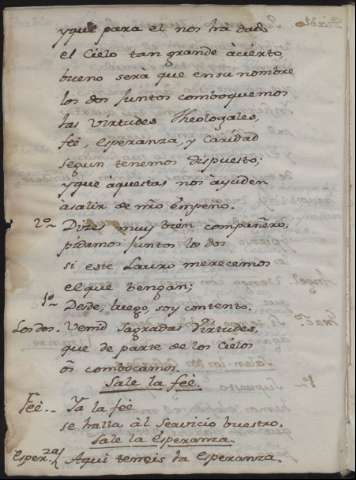 y que para el nos ha dado
el Cielo tan grande àcierto,
bueno serà que en su nombre
los dos juntos comboquemos
las Virtudes Theologales,
feê, esperanza, y Caridad
segun tenemos dispuesto;
y que àquestas nos àyuden
a salir de nr̃o empeño.
2º Dizes muy bien compañero,
pidamos juntos los dos
si este Lauro merecemos
el que bengan;
1º Desde luego soy contento.
Los dos. Venid Sagradas Virtudes,
que de parte de los Cielos
òs combocamos.
Sale la feê.
Feê.. Ya la feê
se halla àl servicio buestro.
Sale la Esperanza
Esper.za Aqui teneis la Esperanza.